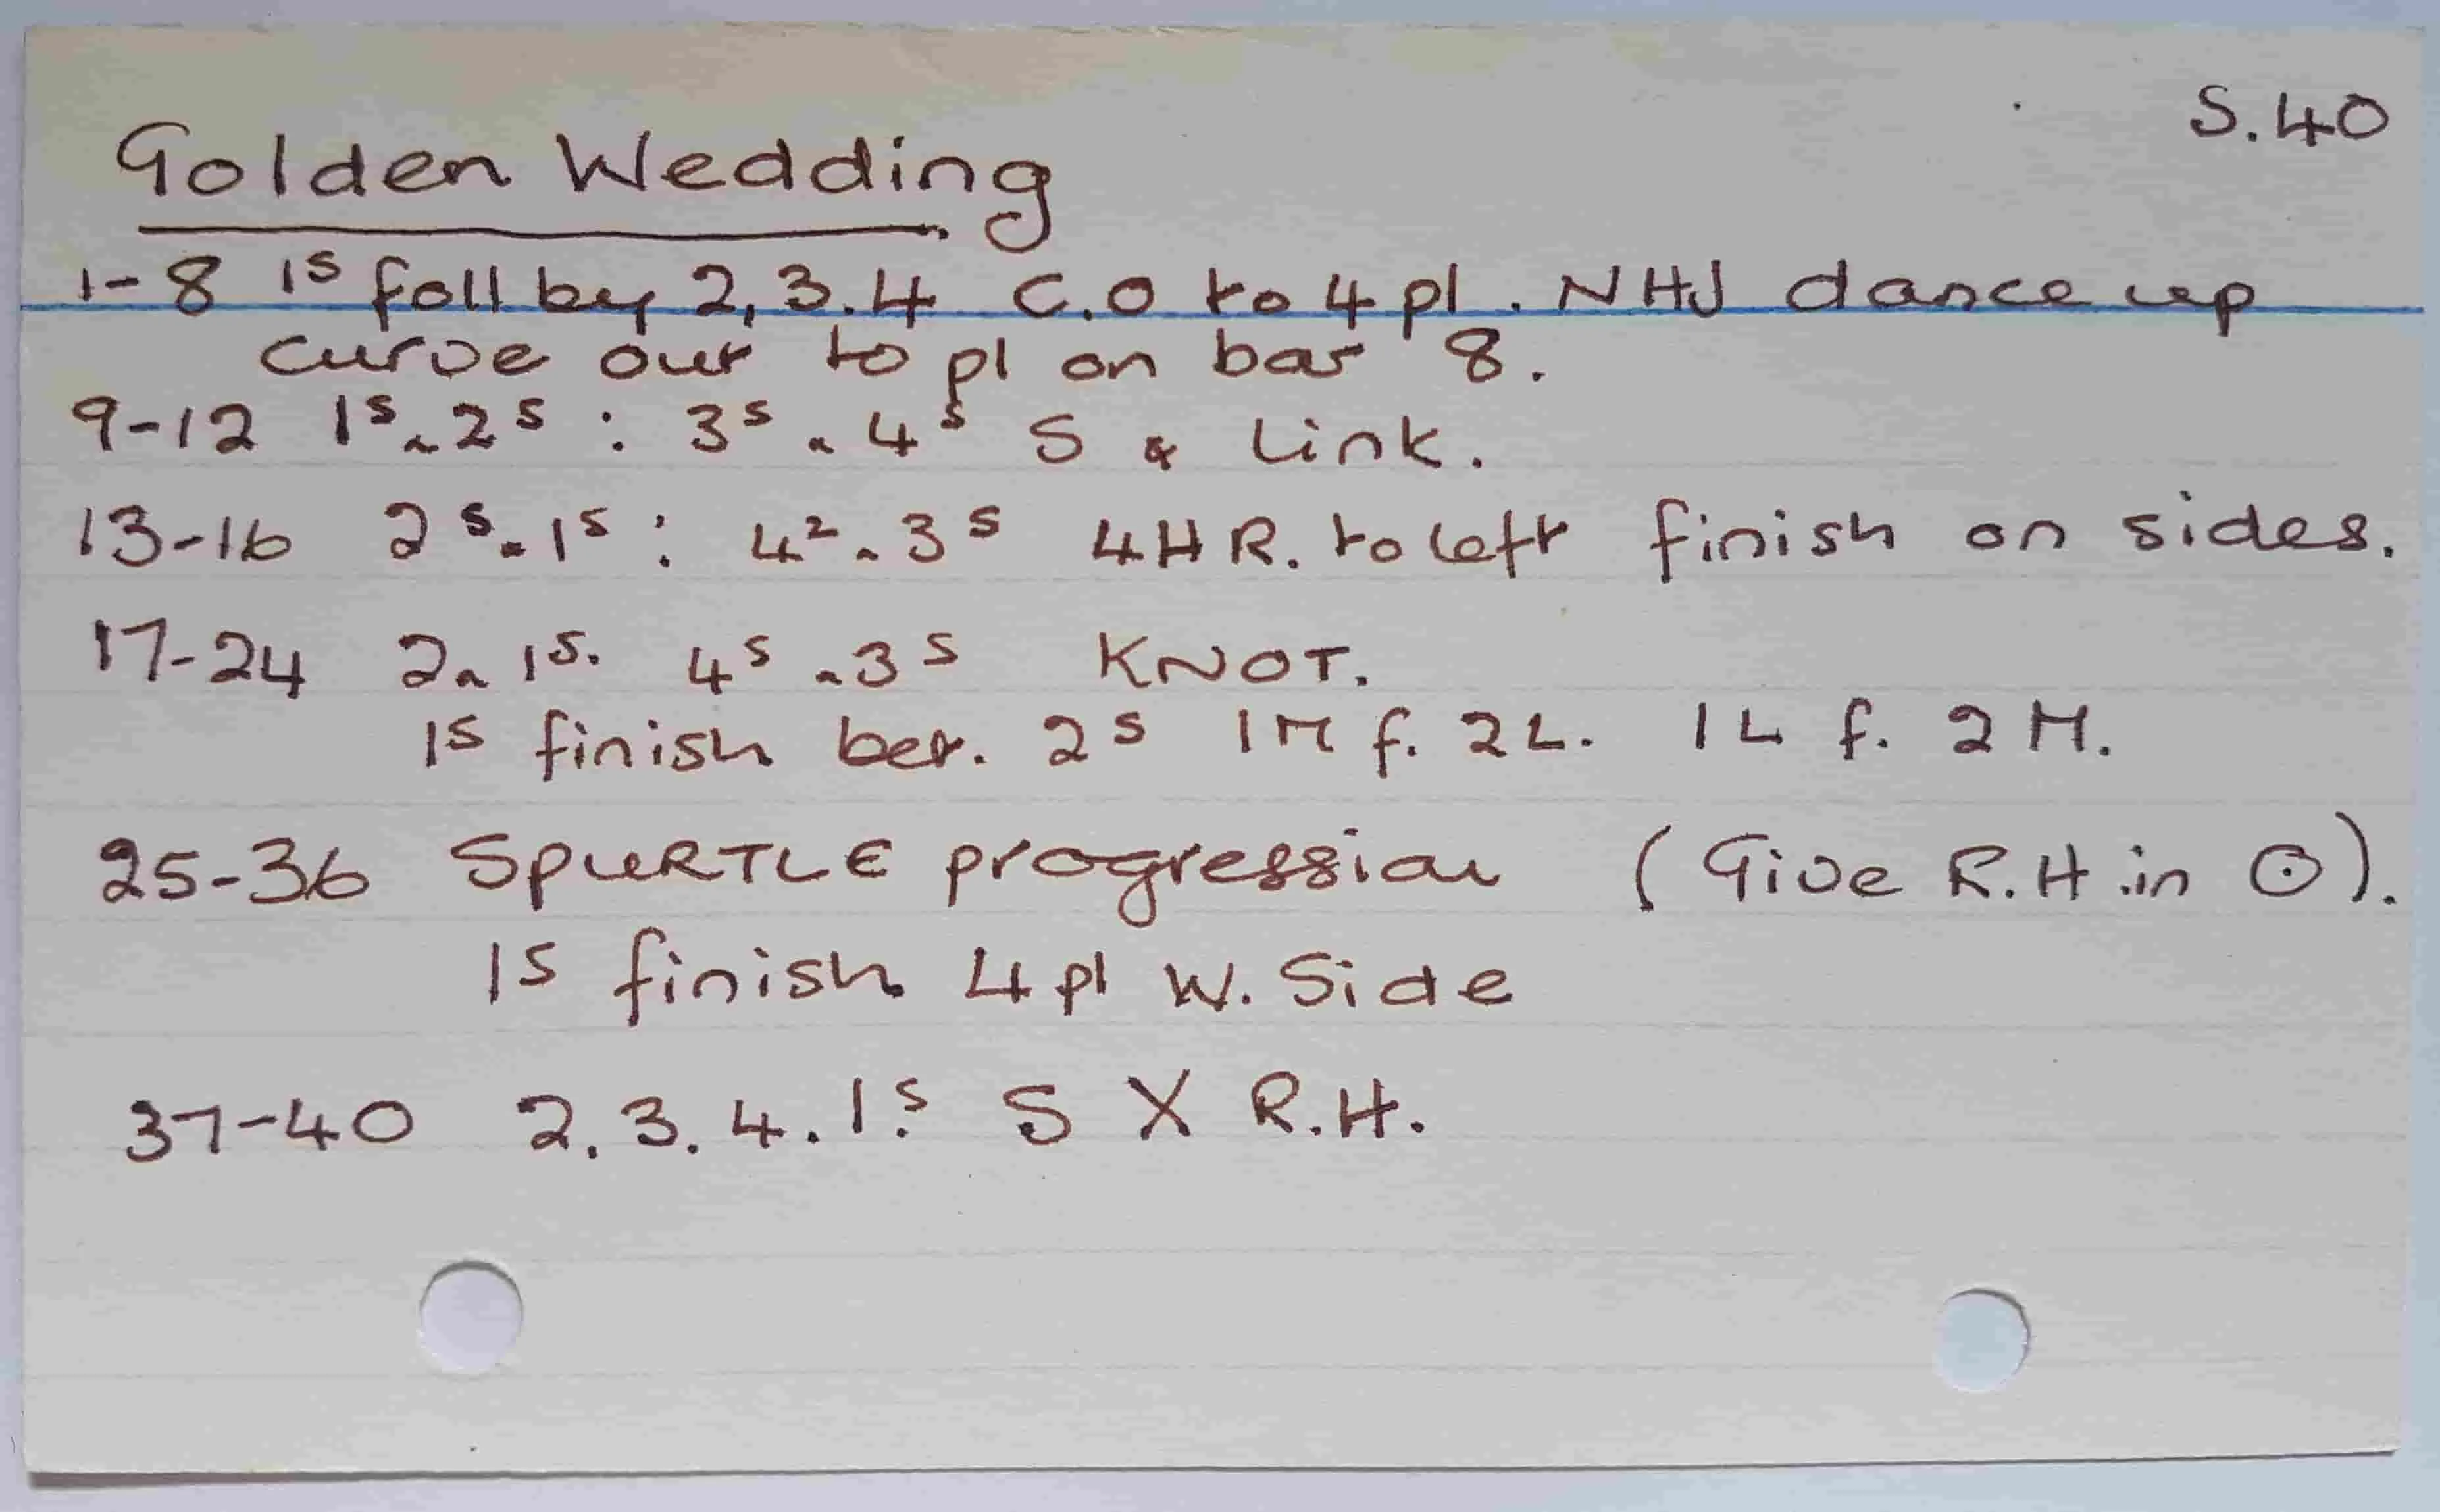 S.40
Golden Wedding
1-8 1s foll by 2,3.4 C.O to 4 pl. NHJ dance up
curve out to pl on bar 8.
9-12 1s n 2s : 3s n 4s S & Link.
13-16 2s n 1s : 4² n 3s 4HR. to left finish on sides.
17-24 2 n 1s. 4s n 3s KNOT.
1s finish bet. 2s 1M f. 2L. 1L f. 2M.
25-36 SPURTLE progression (Give R.H in ⊙).
1s finish 4 pl W. Side
37-40 2.3.4.1s S X R.H.